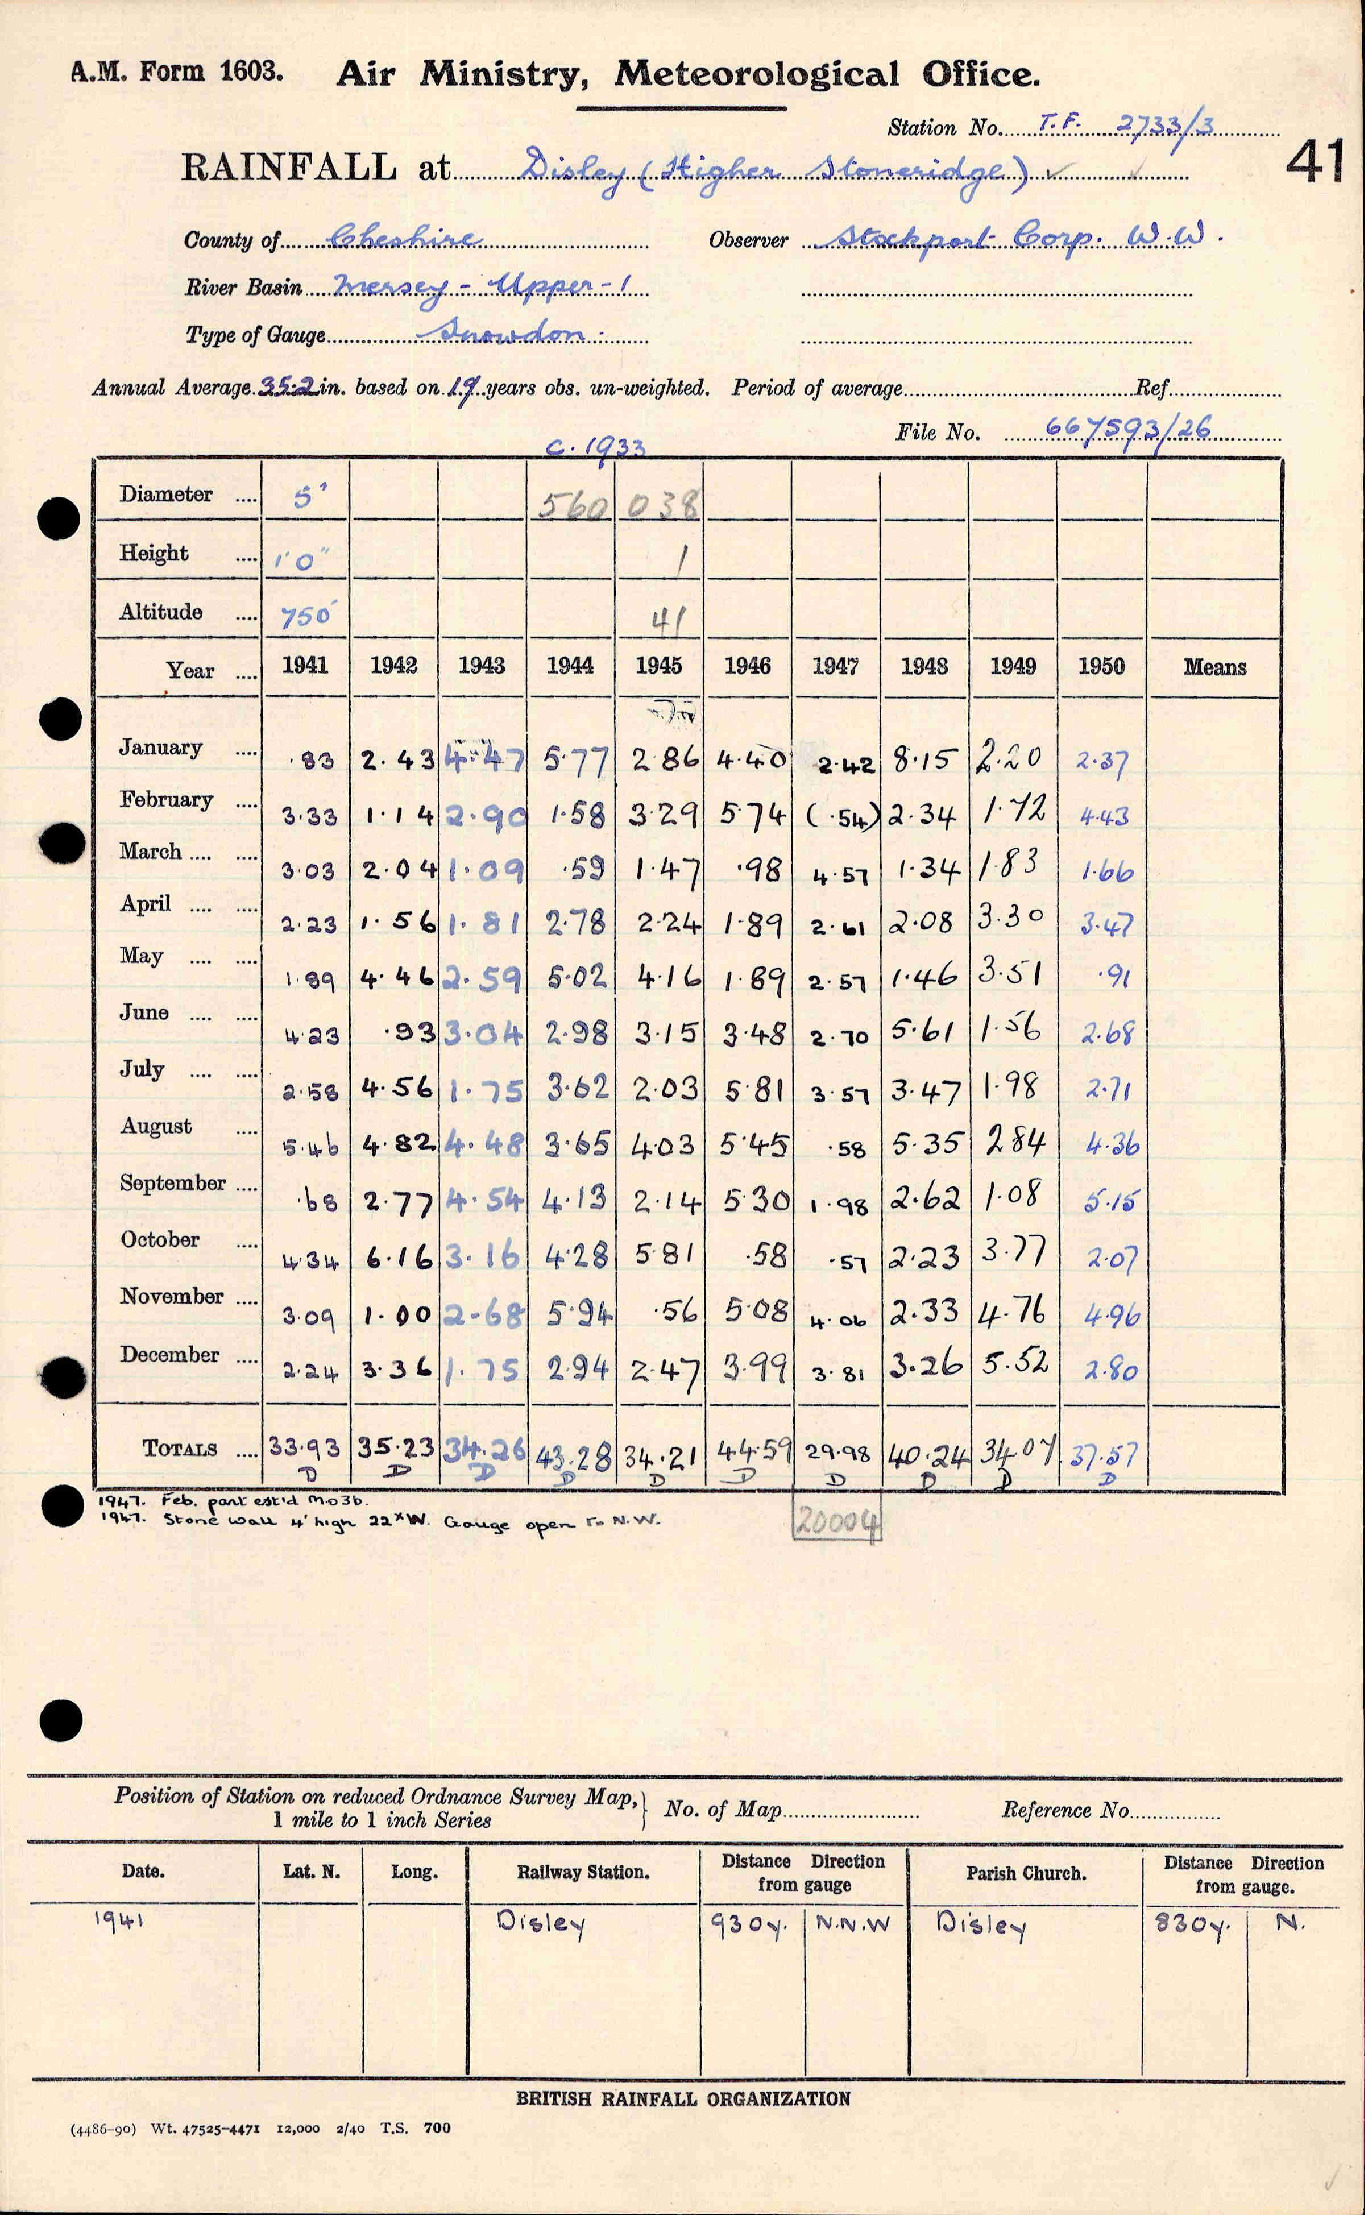 A.M. Form 1603. Air Ministry, Meteorological Office.
Station No. T.F. 2733/3
41
RAINFALL at Disley (Higher Stoneridge)
County of Cheshire Observer Stockport Corp. W.W.
River Basin Mersey - Upper - 1
Type of Gauge Snowdon.
Annual Average 35.2 in. based on 19 years obs. un-weighted. Period of average Ref.
File No. 667593/26
c. 1933
Diameter .... 5" 560 038
Height .... 1'0" 1
Altitude .... 750' 41
Year .... 1941 1942 1943 1944 1945 1946 1947 1948 1949 1950 Means
January .... .83 2.43 4.47 5.77 2.86 4.40 2.42 8.15 2.20 2.37
February .... 3.33 1.14 2.90 1.58 3.29 5.74 (.54) 2.34 1.72 4.43
March .... .... 3.03 2.04 1.09 .59 1.47 .98 4.57 1.34 1.83 1.66
April .... .... 2.23 1.56 1.81 2.78 2.24 1.89 2.61 2.08 3.30 3.47
May .... .... 1.89 4.46 2.59 5.02 4.16 1.89 2.57 1.46 3.51 .91
June .... .... 4.23 .93 3.04 2.98 3.15 3.48 2.70 5.61 1.56 2.68
July .... .... 2.58 4.56 1.75 3.62 2.03 5.81 3.57 3.47 1.98 2.71
August .... 5.46 4.82 4.48 3.65 4.03 5.45 .58 5.35 2.84 4.36
September .... .68 2.77 4.54 4.13 2.14 5.30 1.98 2.62 1.08 5.15
October .... 4.34 6.16 3.16 4.28 5.81 .58 .57 2.23 3.77 2.07
November .... 3.09 1.00 2.68 5.94 .56 5.08 4.06 2.33 4.76 4.96
December .... 2.24 3.36 1.75 2.94 2.47 3.99 3.81 3.26 5.52 2.80
TOTALS .... 33.93 35.23 34.26 43.28 34.21 44.59 29.98 40.24 34.07 37.57
D D D D D D D D D D
1947. Feb. part est'd M.O3b.
1947. Stone wall 4' high 22ˣW. Gauge open to N.W.
20004
Position of Station on reduced Ordnance Survey Map, 1 mile to 1 inch Series } No. of Map Reference No.
Date. Lat. N. Long. Railway Station. Distance Direction from gauge Parish Church. Distance Direction from gauge.
1941 Disley 930y. N.N.W Disley 830y. N.
BRITISH RAINFALL ORGANIZATION
(4486-90) Wt. 47525-4471 12,000 2/40 T.S. 700